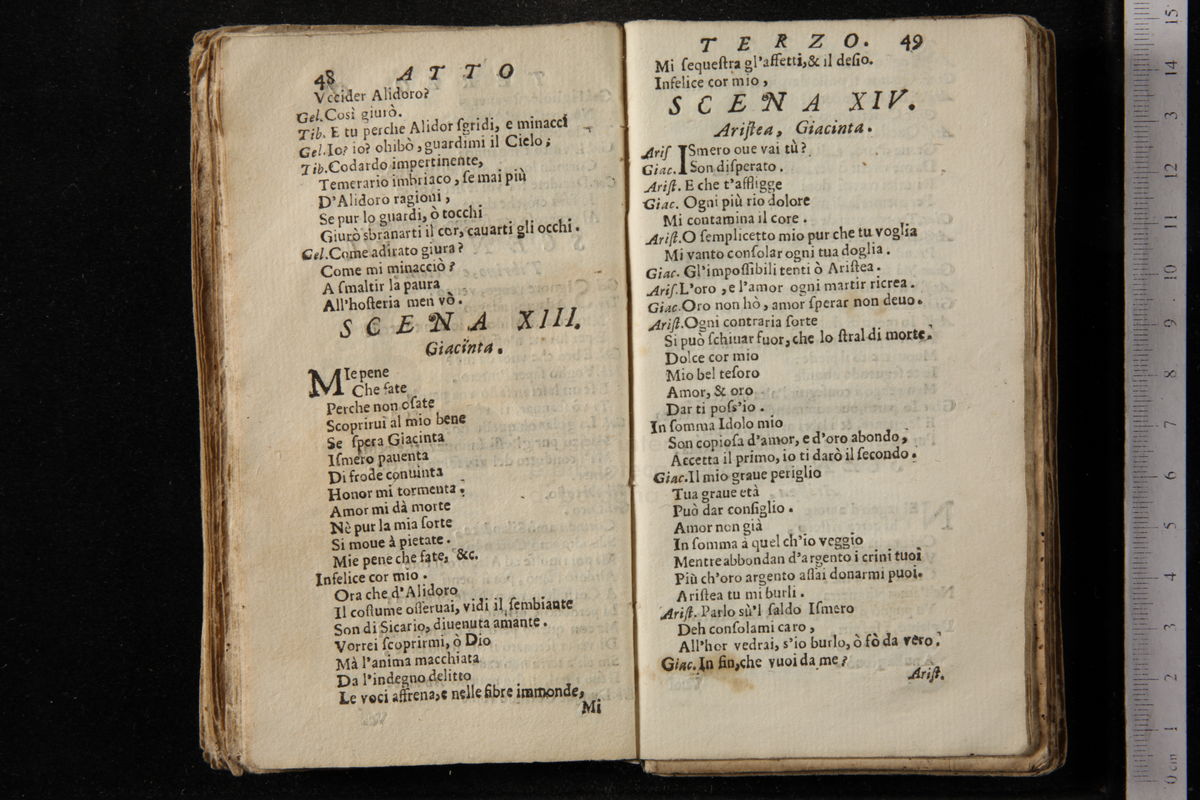 48 ATTO
Vccider Alidoro?
Gel. Così giurò.
Tib. E tu perche Alidor ſgridi, e minacci
Gel. Io? io? ohibò, guardimi il Cielo;
Tib. Codardo impertinente,
Temerario imbriaco, ſe mai più
D'Alidoro ragioni,
Se pur lo guardi, ò tocchi
Giurò sbranarti il cor, cauarti gli occhi.
Gel. Come adirato giura?
Come mi minacciò?
A ſmaltir la paura
All'hoſteria men vò.
SCENA XIII.
Giacinta.
MIe pene
Che fate
Perche non oſate
Scoprirui al mio bene
Se ſpera Giacinta
Iſmero pauenta
Di frode conuinta
Honor mi tormenta.
Amor mi dà morte
Nè pur la mia ſorte
Si moue à pietate.
Mie pene che fate, &c.
Infelice cor mio.
Ora che d'Alidoro
Il coſtume oſſeruai, vidi il ſembiante
Son di Sicario, diuenuta amante.
Vorrei ſcoprirmi, ò Dio
Mà l'anima macchiata
Da l'indegno delitto
Le voci affrena, e nelle fibre immonde,
Mi
TERZO. 49
Mi ſequeſtra gl'affetti, & il deſio.
Infelice cor mio,
SCENA XIV.
Ariſtea, Giacinta.
Ariſ ISmero oue vai tù?
Giac. Son diſperato.
Ariſt. E che t'affligge
Giac. Ogni più rio dolore
Mi contamina il core.
Ariſt. O ſemplicetto mio pur che tu voglia
Mi vanto conſolar ogni tua doglia.
Giac. Gl'impoſſibili tenti ò Ariſtea.
Ariſ. L'oro, e l'amor ogni martir ricrea.
Giac. Oro non hò, amor ſperar non deuo.
Ariſt. Ogni contraria ſorte
Si può ſchiuar fuor, che lo ſtral di morte.
Dolce cor mio
Mio bel teſoro
Amor, & oro
Dar ti poſs'io.
In ſomma Idolo mio
Son copioſa d'amor, e d'oro abondo,
Accetta il primo, io ti darò il ſecondo.
Giac. Il mio graue periglio
Tua graue età
Può dar conſiglio.
Amor non già
In ſomma à quel ch'io veggio
Mentre abbondan d'argento i crini tuoi
Più ch'oro argento aſſai donarmi puoi.
Ariſtea tu mi burli.
Ariſt. Parlo sù'l ſaldo Iſmero
Deh conſolami caro,
All'hor vedrai, s'io burlo, ò fò da vero.
Giac. In fin, che vuoi da me?
Ariſt.
0 cm 1 2 3 4 5 6 7 8 9 10 11 12 13 14 15